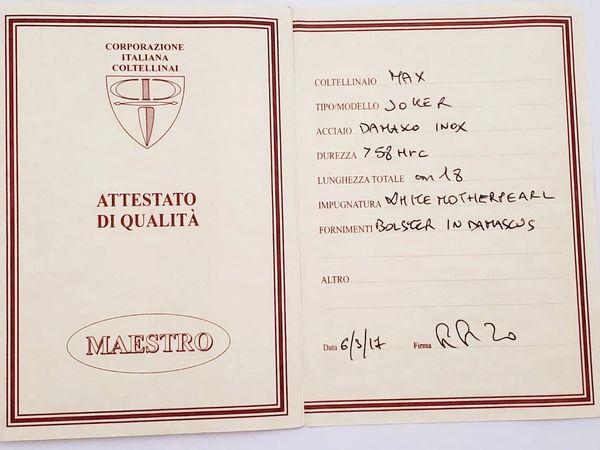 CORPORAZIONE
ITALIANA
COLTELLINAI
ATTESTATO
DI QUALITÀ
MAESTRO
COLTELLINAIO MAX
TIPO/MODELLO JOKER
ACCIAIO DAMASCO INOX
DUREZZA 758 HRC
LUNGHEZZA TOTALE cm 18
IMPUGNATURA WHITE MOTHERPEARL
FORNIMENTI BOLSTER IN DAMASCUS
ALTRO
Data 6/3/17 Firma